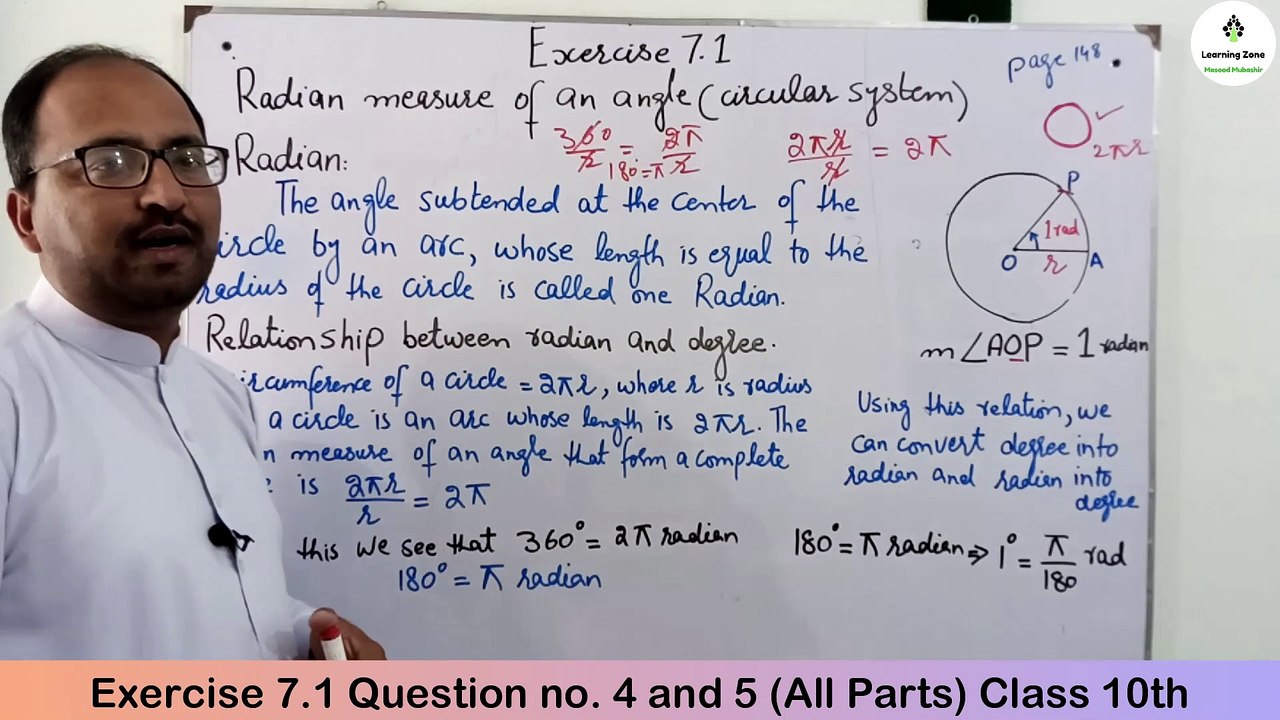 Learning Zone
Masood Mubashir
Exercise 7.1
page 148
Radian measure of an angle (circular system)
360/2 = 2π/2
180 = π
2πr/r = 2π
2πr
Radian:
The angle subtended at the center of the
ircle by an arc, whose length is equal to the
radius of the circle is called one Radian.
P
1 rad
O
r
A
m∠AOP = 1 radian
Relationship between radian and degree.
ircumference of a circle = 2πr, where r is radius
a circle is an arc whose length is 2πr. The
n measure of an angle that form a complete
is 2πr/r = 2π
this we see that 360° = 2π radian
180° = π radian
Using this relation, we
can convert degree into
radian and radian into
degree
180° = π radian ⇒ 1° = π/180 rad
Exercise 7.1 Question no. 4 and 5 (All Parts) Class 10th